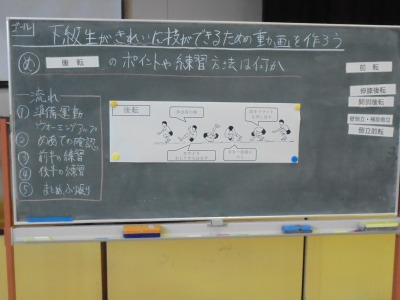 ゴール 下級生がきれいに技ができるための動画を作ろう
め 後転 のポイントや練習方法は何か
前転
伸膝後転
開脚後転
壁倒立・補助倒立
倒立前転
流れ
① 準備運動
ウォーミングアップ
② めあての確認
③ 前半の練習
④ 後半の練習
⑤ まとめ、ふり返り
後転